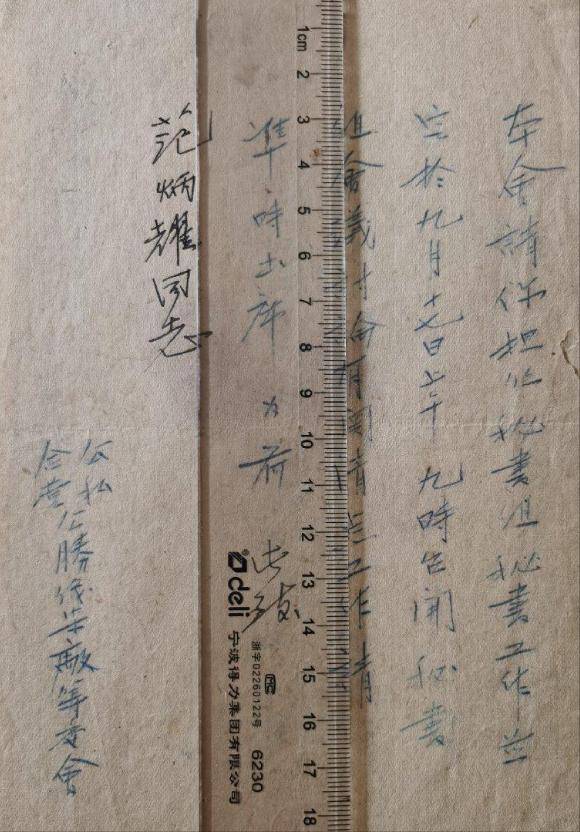 本會請你担任秘書組秘書工作并
定於九月十七日上午九時召開秘書
組會議討会有關 工作請
準時出席为荷
此致
范炳耀同志
公私
合营 勝 籌委會
1cm 2 3 4 5 6 7 8 9 10 11 12 13 14 15 16 17 18
deli
浙字02260122号
MC
6230
宁波得力集团有限公司